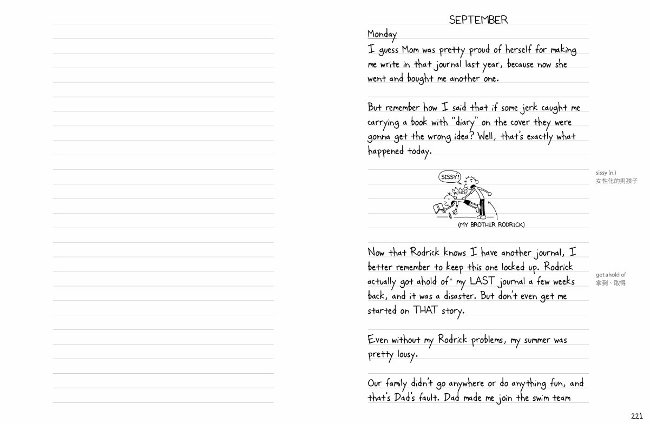 SEPTEMBER
Monday
I guess Mom was pretty proud of herself for making
me write in that journal last year, because now she
went and bought me another one.
But remember how I said that if some jerk caught me
carrying a book with "diary" on the cover they were
gonna get the wrong idea? Well, that's exactly what
happened today.
SISSY!
(MY BROTHER RODRICK)
sissy (n.)
女性化的男孩子
Now that Rodrick knows I have another journal, I
better remember to keep this one locked up. Rodrick
actually got ahold of my LAST journal a few weeks
back, and it was a disaster. But don't even get me
started on THAT story.
got ahold of
拿到,取得
Even without my Rodrick problems, my summer was
pretty lousy.
Our family didn't go anywhere or do anything fun, and
that's Dad's fault. Dad made me join the swim team
221